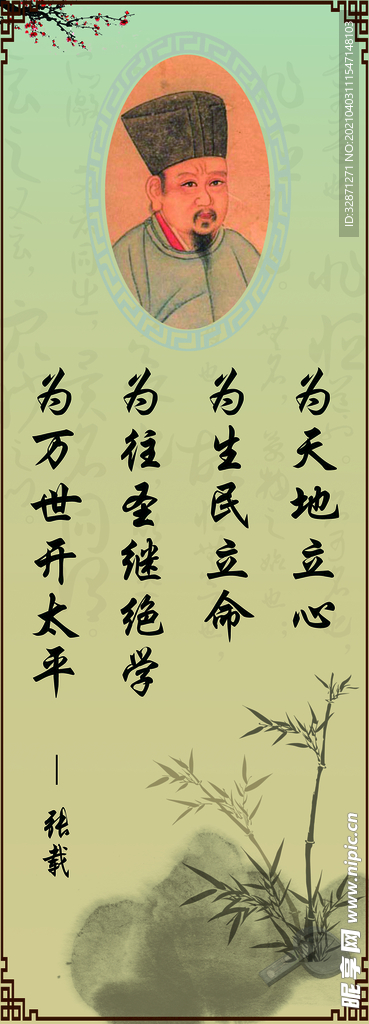 为天地立心
为生民立命
为往圣继绝学
为万世开太平
—张载
ID:32871271 NO:20210403111547148103
昵享网 www.nipic.cn